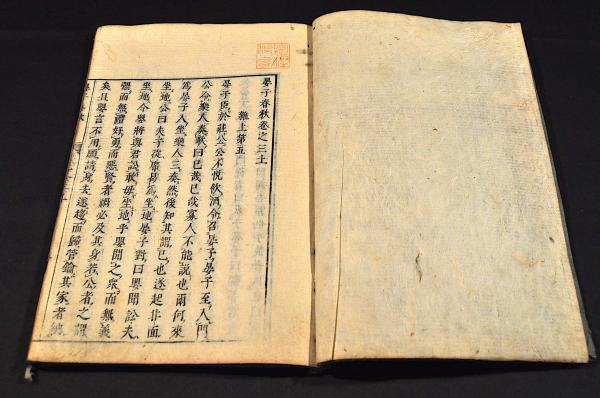 晏子春秋卷之三上
雜上第五
晏子臣於莊公公不悅飲酒令召晏子晏子至入門
公令樂人奏歌曰已哉已哉寡人不能說也爾何來
爲晏子入坐樂人三奏然後知其謂已也遂起北面
坐地公曰夫子從席曷爲坐地晏子對曰嬰聞訟夫
坐地今嬰將與君訟敢毋坐地乎嬰聞之衆而無義
彊而無禮好勇而惡賢者禍必及其身若公者之謂
矣且嬰言不用願請身去遂趨而歸管籥其家者納